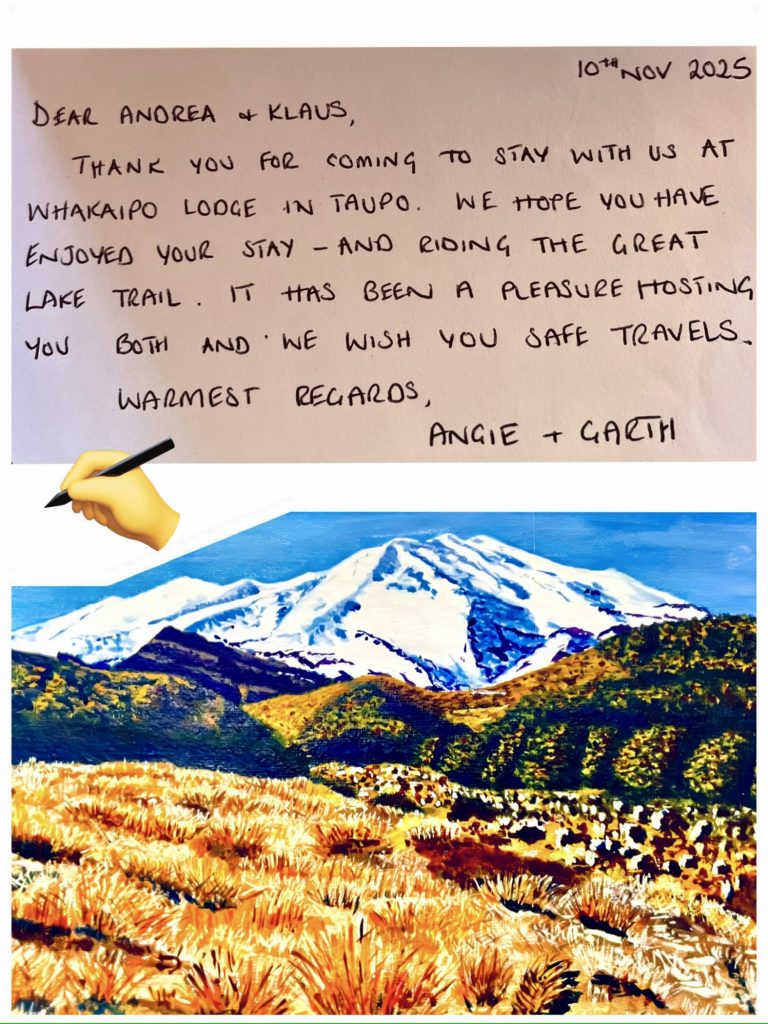 10TH NOV 2025
DEAR ANDREA + KLAUS,
THANK YOU FOR COMING TO STAY WITH US AT
WHAKAIPO LODGE IN TAUPO. WE HOPE YOU HAVE
ENJOYED YOUR STAY – AND RIDING THE GREAT
LAKE TRAIL. IT HAS BEEN A PLEASURE HOSTING
YOU BOTH AND WE WISH YOU SAFE TRAVELS.
WARMEST REGARDS,
ANGIE + GARTH